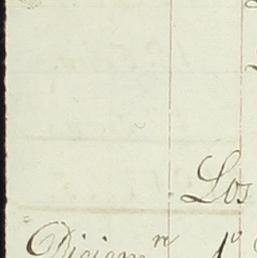 Los
Diciem.re 1º